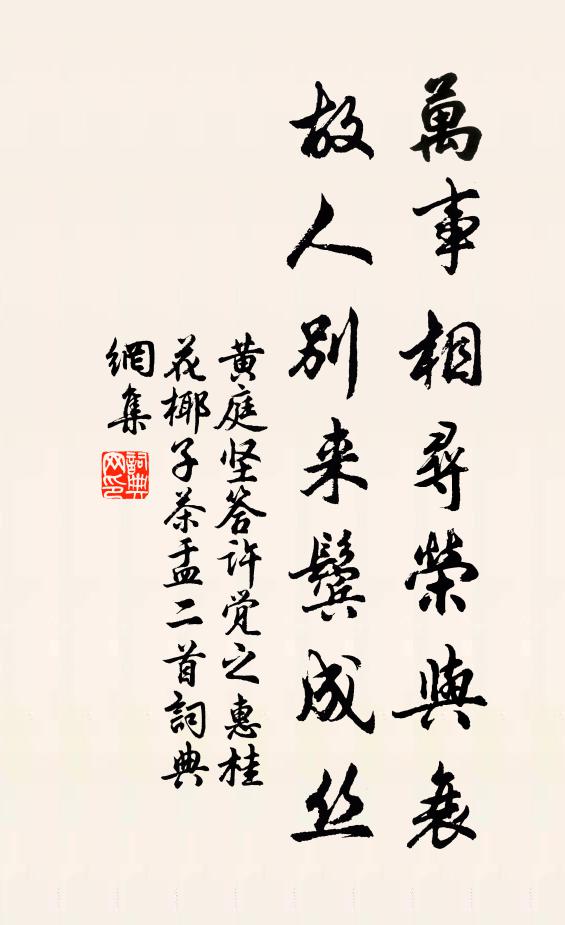 萬事相尋榮與衰
故人別来鬢成丝
黄庭坚答许觉之惠桂
花椰子茶盂二首詞典
網集
詞典
网印